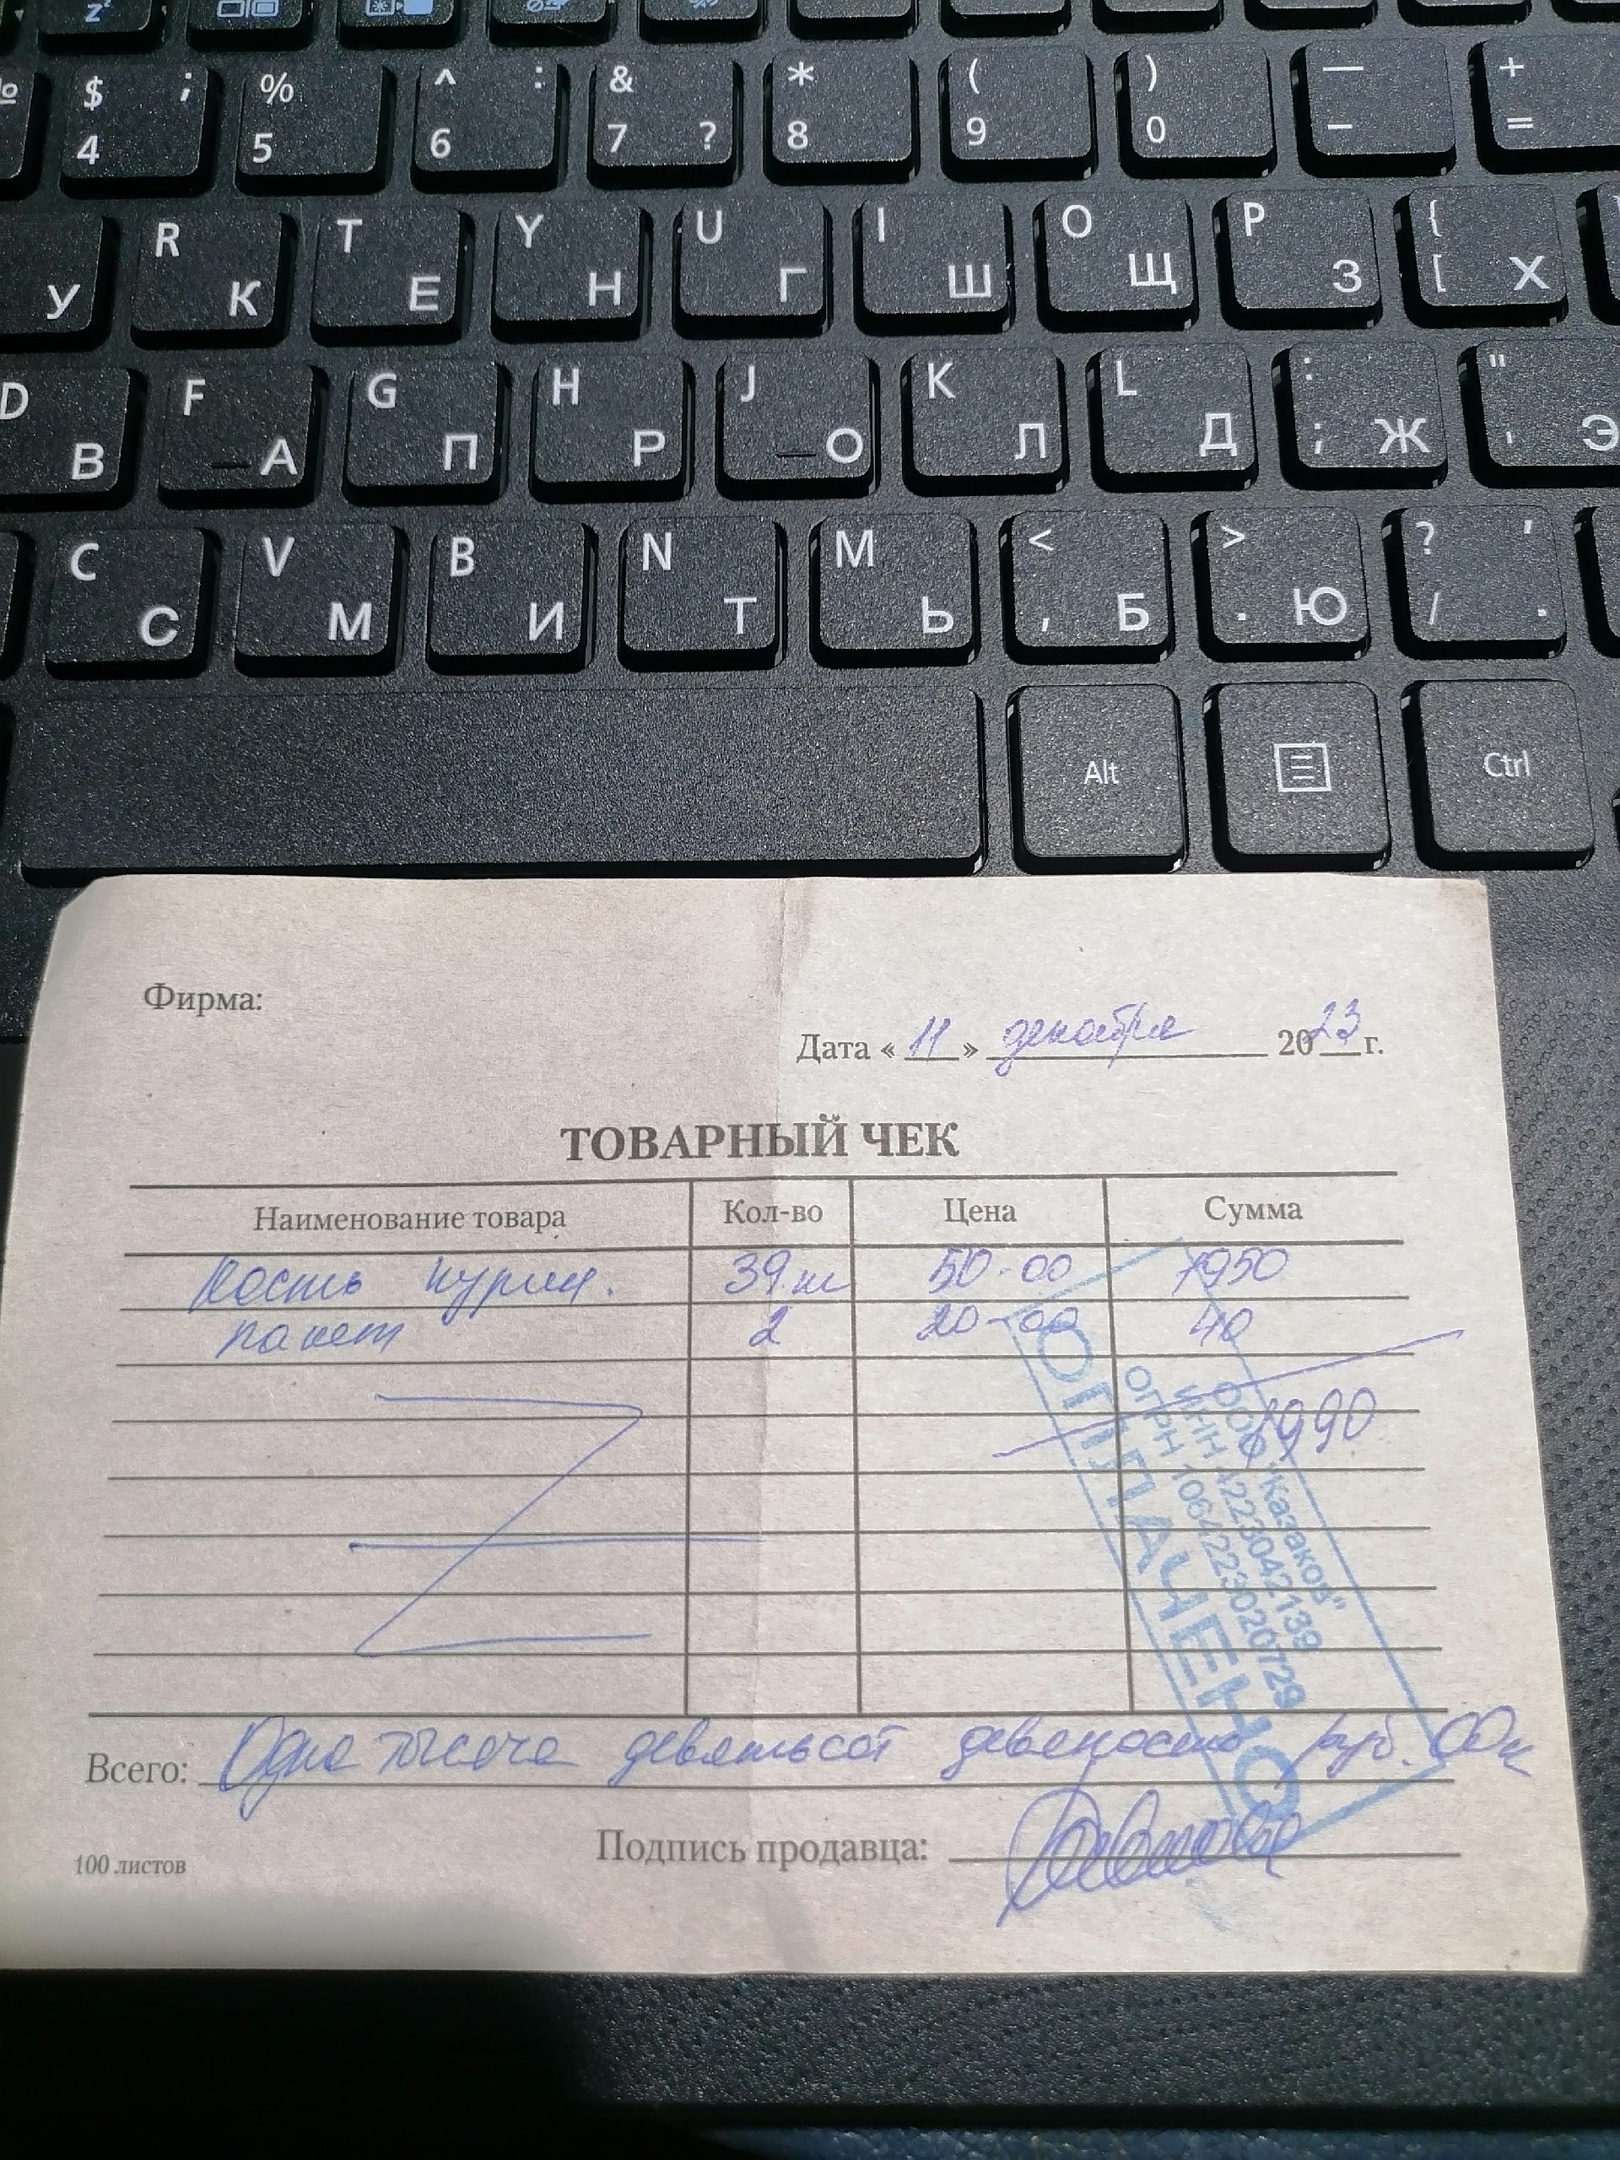 z
№ $ ; 4 % 5 ^ : 6 & 7 ? * 8 ( 9 ) 0 — – + =
У R К T Е Y Н U Г I Ш O Щ P З { [ Х
D В F А G П H Р J О K Л L Д : ; Ж " ' Э
C С V М B И N Т M Ь < , Б > . Ю ? , / .
Alt Ctrl
Фирма:
Дата « 11 » декабря 2023 г.
ТОВАРНЫЙ ЧЕК
Наименование товара Кол-во Цена Сумма
Кость курин. 39 кг 50-00 1950
пакет 2 20-00 40
1990
ООО "Казаков"
ИНН 4223042139
ОГРН 1064223020729
ОПЛАЧЕНО
Всего: Одна тысяча девятьсот девяносто руб. 00 к
Подпись продавца:
100 листов